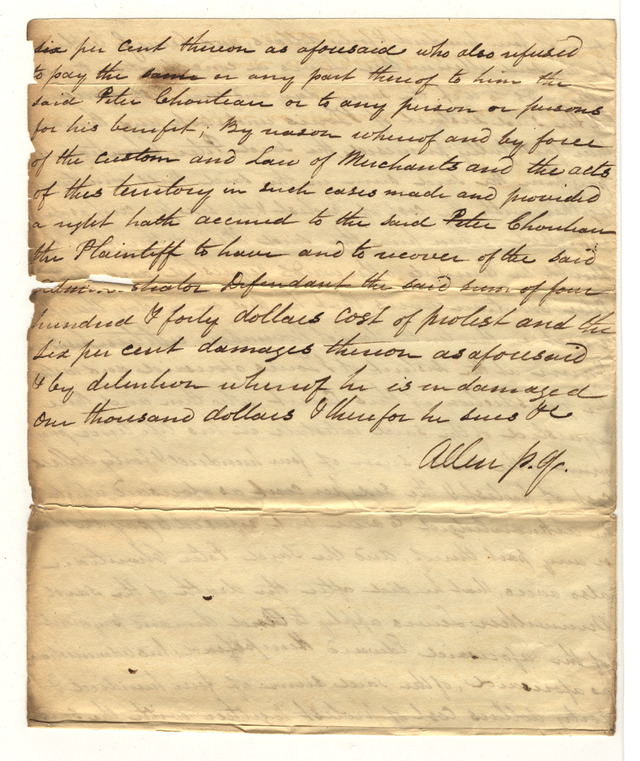 six per cent thereon as aforesaid who also refused
to pay the same or any part thereof to him the
said Peter Chouteau or to any person or persons
for his benefit; By reason whereof and by force
of the custom and Law of Merchants and the acts
of this territory in such cases made and provided
a right hath accrued to the said Peter Chouteau
the Plaintiff to have and to recover of the said
administrator Defendant the said sum of four
hundred & forty dollars cost of protest and the
six per cent damages thereon as aforesaid
& by detention whereof he is endamaged
One thousand dollars & therefor he sues &c
Allen p. q.